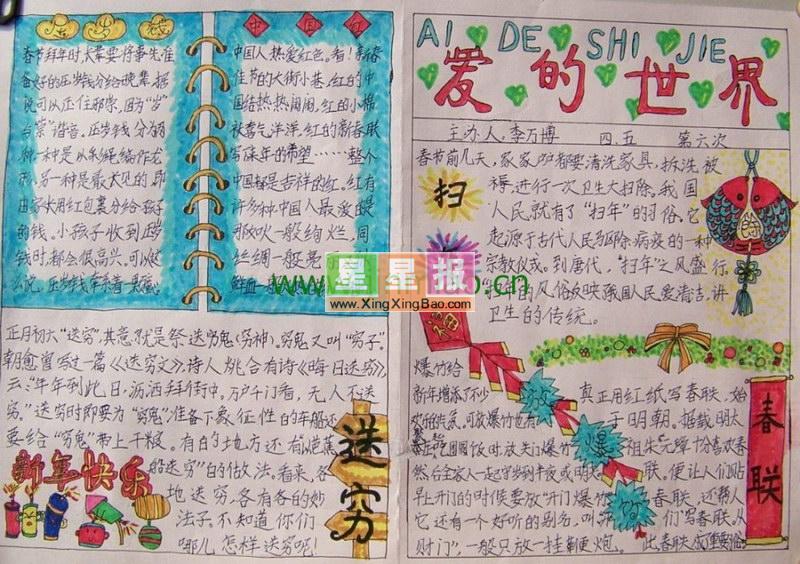 压岁钱
春节拜年时,长辈要将事先准
备好的压岁钱分给晚辈,据
说可以压住邪祟,因为“岁”
与“祟”谐音,压岁钱分为两
种,一种是以彩绳编作龙
形,另一种是最常见的,即
由家长用红包裹分给孩子
的钱。小孩子收到压岁
钱时都会很高兴,可以
么说,压岁钱牵系着一颗颗
中国红
中国人热爱红色。看!新春
佳节的大街小巷,红的中
国结热热闹闹,红的小棉
袄喜气洋洋,红的新春联
写满年的希望……整个
中国都是吉祥的红。红有
许多种,中国人最爱的是
那如火一般绚烂,同
丝绸一般亮
鲜血一般
AI DE SHI JIE
爱的世界
主办人:李万博 四.五 第六次
春节前几天,家家户户都要清洗家具,拆洗被
褥,进行一次卫生大扫除,我国
人民就有了“扫年”的习俗,它
起源于古代人民驱除病疫的一种
宗教仪式。到唐代,“扫年”之风盛行,
的风俗反映我国人民爱清洁,讲
卫生的传统。
扫
年
星星报
www.XingXingBao.com
.cn
正月初六“送穷”,其意就是祭送穷鬼(穷神)。穷鬼又叫“穷子”。
朝愈曾写过一篇《送穷文》,诗人姚合有诗《晦日送穷》
云:“年年到此日,沥洒拜街中。万户千门看,无人不送
穷。”送穷时即要为“穷鬼”准备下象征性的车船,还
要给“穷鬼”带上干粮。有的地方还有
船送穷”的做法。看来,各
地送穷,各有各的妙
法子,不知道你们
哪儿怎样送穷呢!
新年快乐
送穷
福
爆竹给
新年增添了不少
欢乐的气氛,可放爆竹也有
吃团圆饭时,放关门爆竹
然后全家人一起守岁到半夜或明天
早上开门的时候要放“开门爆竹
它还有一个好听的别名,叫
财门”,一般只放一挂鞭炮。
爆
竹
真正用红纸写春联,始
于明朝。据载明太
祖朱元璋十分喜欢春
联。便让人们贴
春联,还帮人
们写春联,从
此春联成
春联